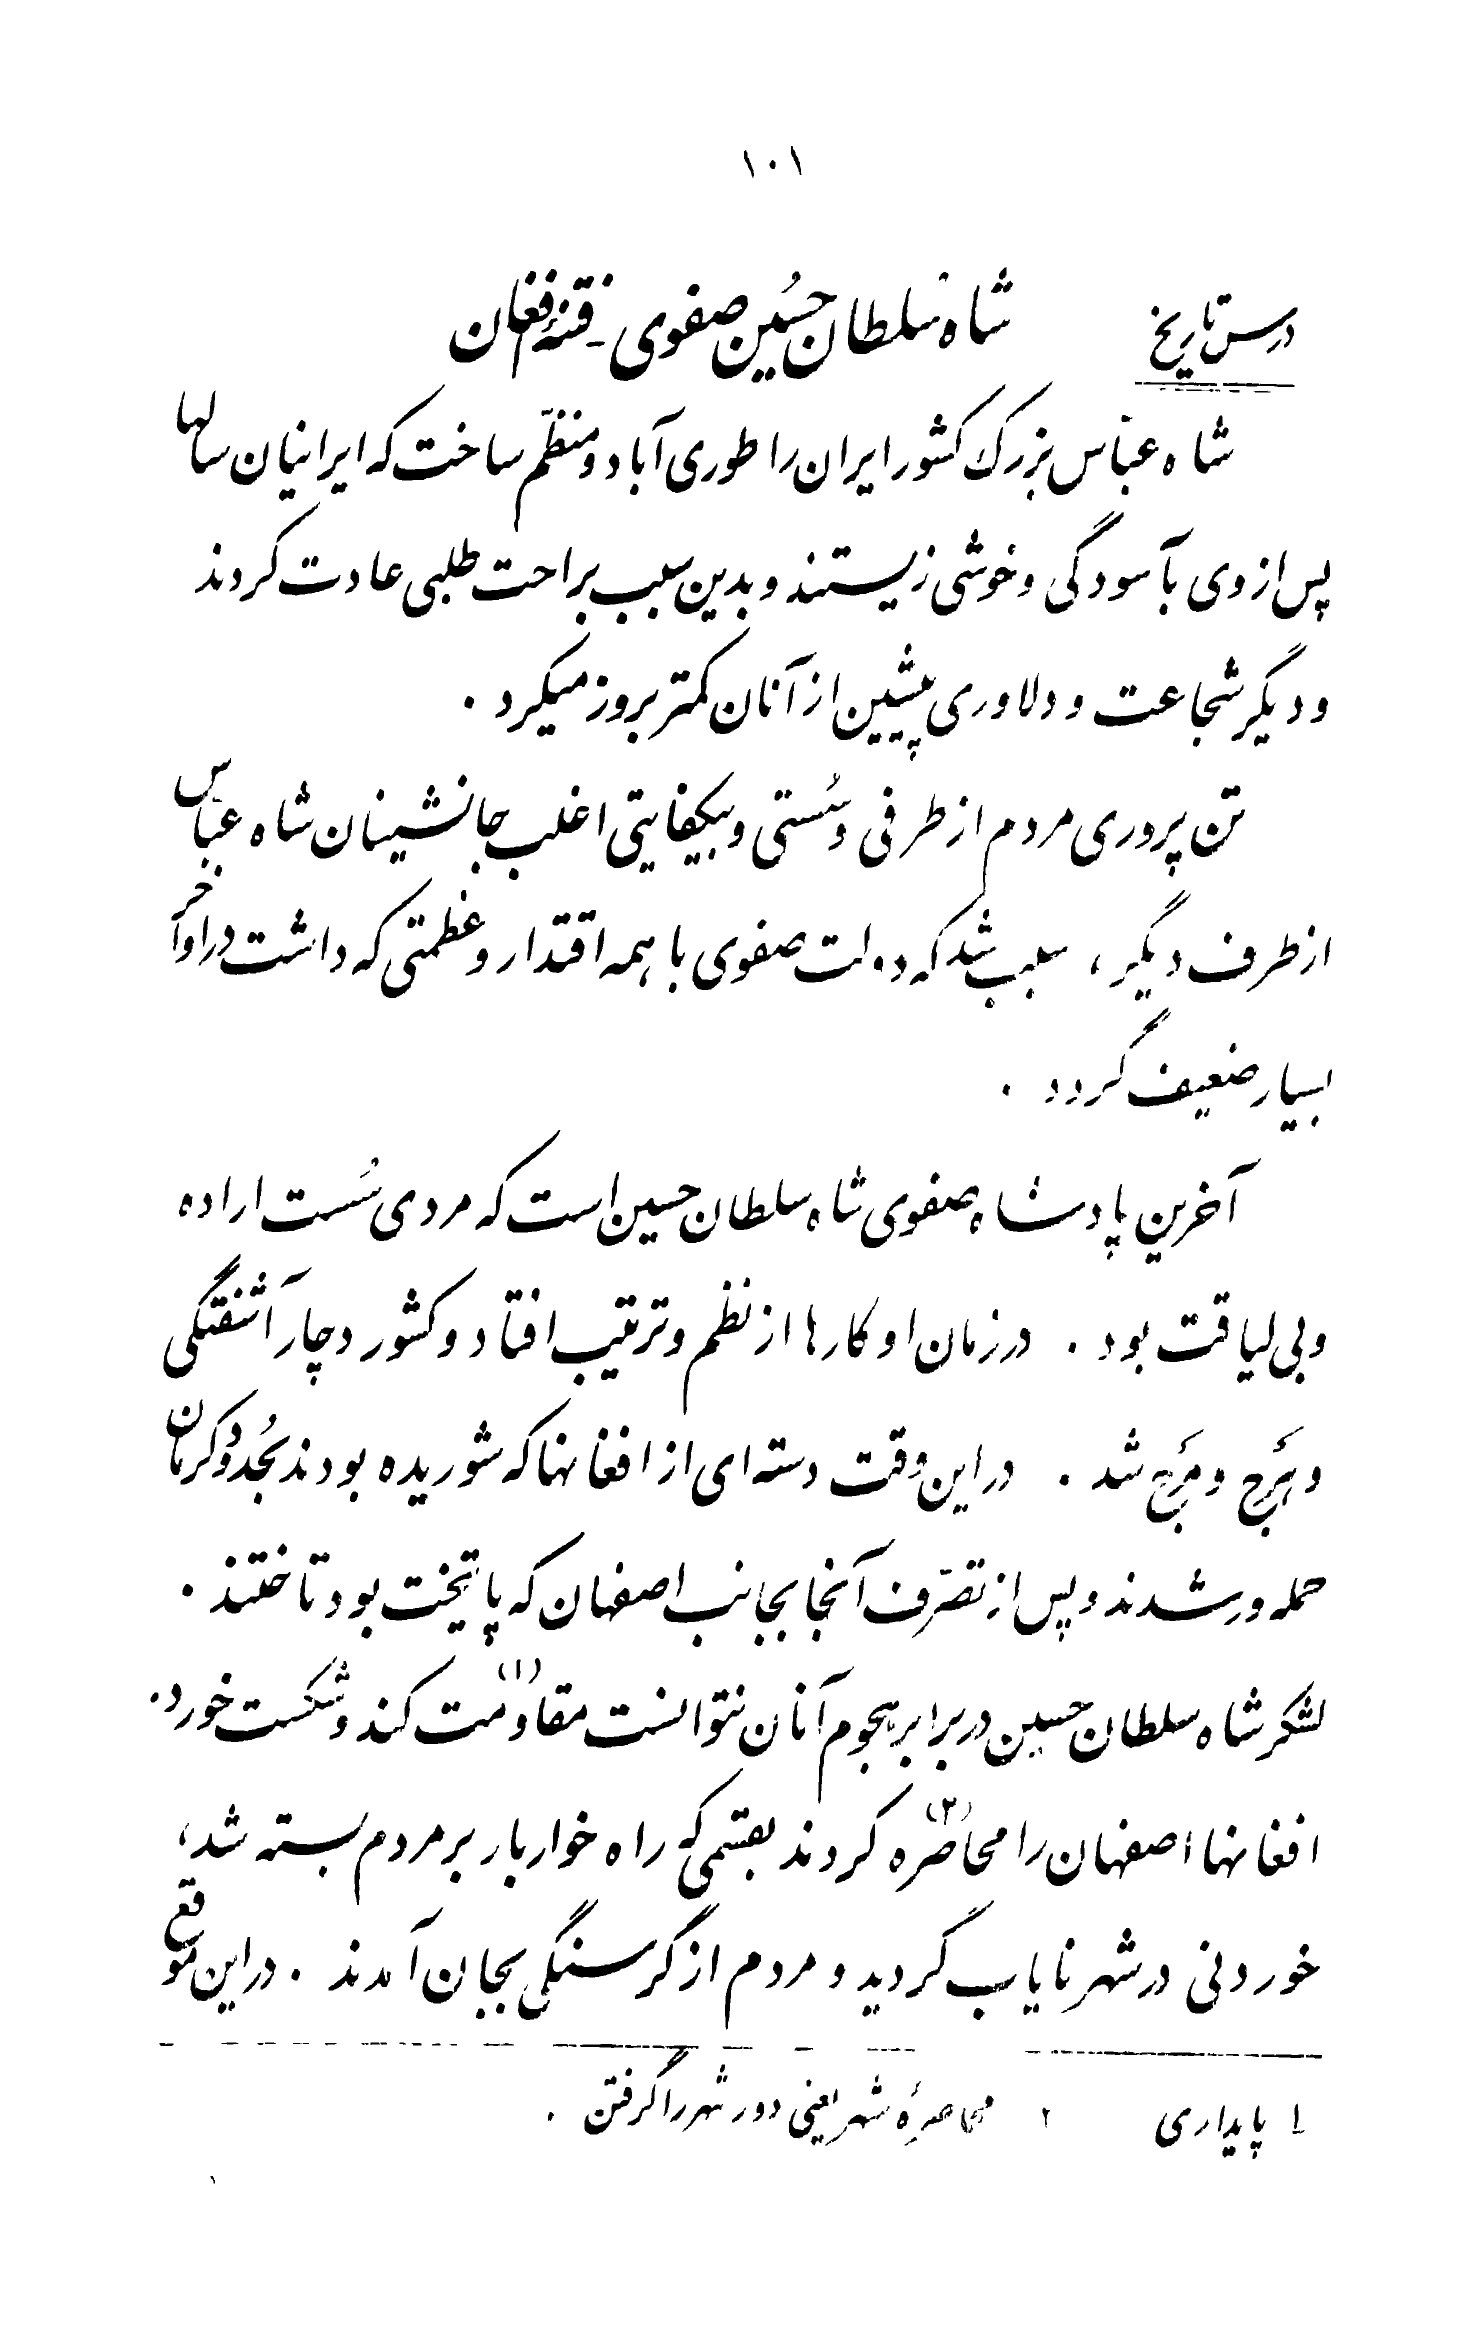 ۱۰۱
درس تاریخ شاه سلطان حسُین صفوی - فتنهٔ افغان
شاه عبّاس بزرگ کشور ایران را طوری آباد و منظّم ساخت که ایرانیان سالها
پس از وی بآسودگی و خوشی زیستند و بدین سبب براحت طلبی عادت کردند
و دیگر شجاعت و دلاوری پیشین از آنان کمتر بروز میکرد .
تن پروری مردم از طرفی و سُستی و بیکفایتی اغلب جانشینان شاه عبّاس
از طرف دیگر ، سبب شد که دولت صفوی با همه اقتدار و عظمتی که داشت در اواخر
بسیار ضعیف گردد .
آخرین پادشاه صفوی شاه سلطان حسین است که مردی سُست اراده
و بی لیاقت بود . در زمان او کارها از نظم و ترتیب افتاد و کشور دچار آشفتگی
و هَرج و مَرج شد . در این وقت دسته ای از افغانها که شوریده بودند بحُدود کرمان
حمله ور شدند و پس از تصرّف آنجا بجانب اصفهان که پایتخت بود تاختند .
لشکر شاه سلطان حسین در برابر هجوم آنان نتوانست مقاومت (۱) کند و شکست خورد .
افغانها اصفهان را محاصَره (۲) کردند بقسمی که راه خواربار بر مردم بسته شد ،
خوردنی در شهر نایاب گردید و مردم از گرسنگی بجان آمدند . در این موقع
۱ پایداری ۲ محاصرهٔ شهر یعنی دور شهر را گرفتن .